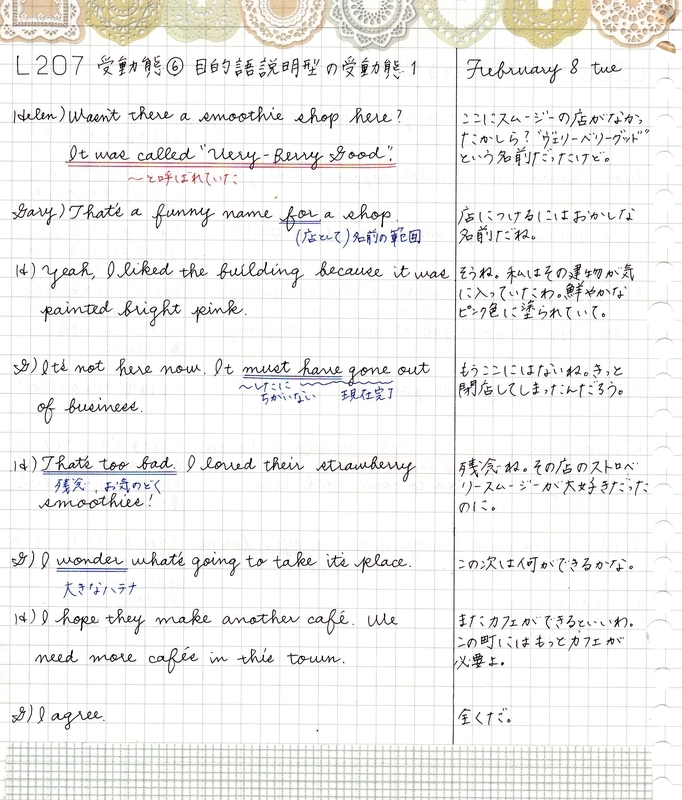 L207 受動態⑥ 目的語説明型の受動態.1
February 8 tue
Helen) Wasn't there a smoothie shop here?
It was called "Very-Berry Good".
〜と呼ばれていた
ここにスムージーの店がなかっ
たかしら？"ヴェリーベリーグッド"
という名前だったけど。
Gary) That's a funny name for a shop.
(店として)名前の範囲
店につけるにはおかしな
名前だね。
H) Yeah, I liked the building because it was
painted bright pink.
そうね。私はその建物が気
に入っていたわ。鮮やかな
ピンク色に塗られていて。
G) It's not here now. It must have gone out
〜したに
ちがいない
現在完了
of business.
もうここにはないね。きっと
閉店してしまったんだろう。
H) That's too bad. I loved their strawberry
残念、お気のどく
smoothies!
残念ね。その店のストロベ
リースムージーが大好きだった
のに。
G) I wonder what's going to take it's place.
大きなハテナ
この次は何ができるかな。
H) I hope they make another café. We
need more cafés in this town.
またカフェができるといいわ。
この町にはもっとカフェが
必要よ。
G) I agree.
全くだ。